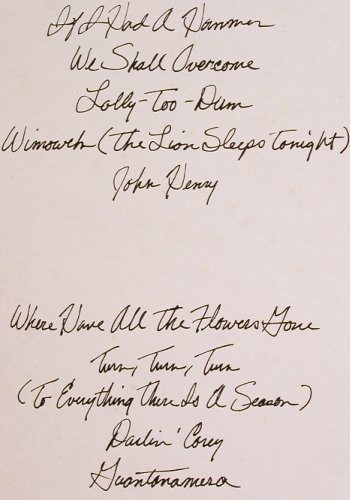 If I Had A Hammer
We Shall Overcome
Lolly-Too-Dum
Wimoweh (The Lion Sleeps Tonight)
John Henry
Where Have All The Flowers Gone
Turn, Turn, Turn
(To Everything There Is A Season)
Darlin' Corey
Guantanamera